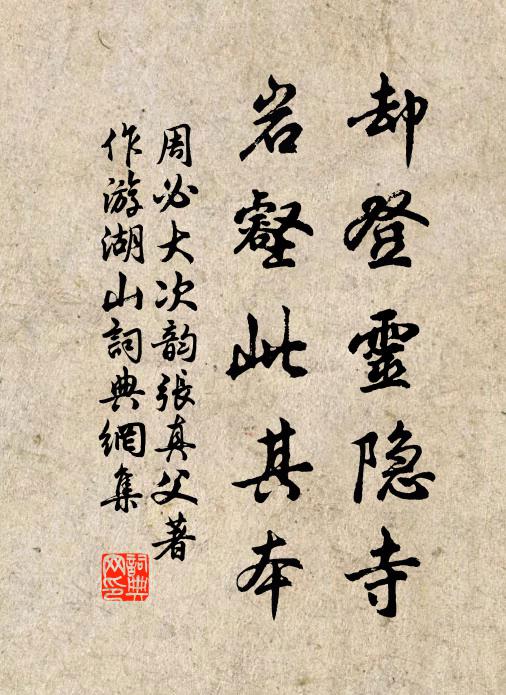 却登靈隐寺
岩壑此其本
周必大次韵張真父著
作游湖山詞典網集
詞典
网印